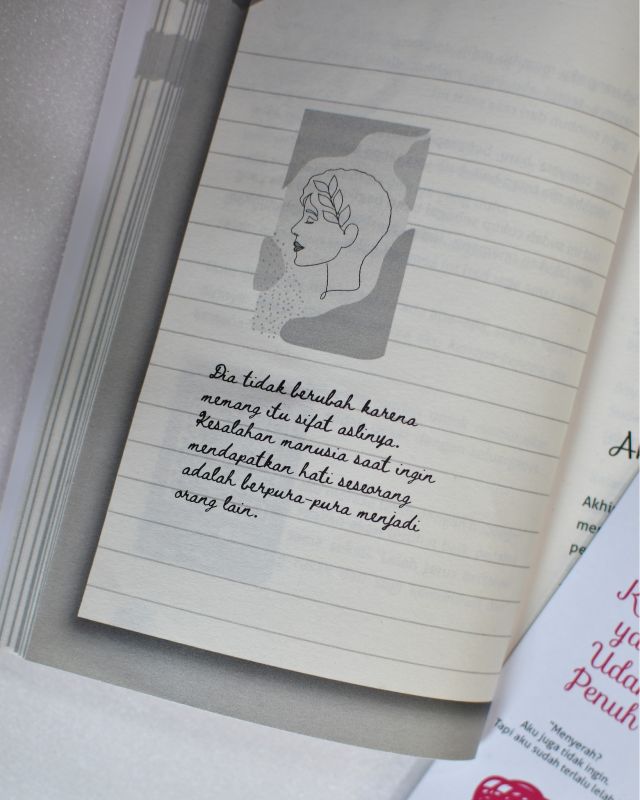 Dia tidak berubah karena
memang itu sifat aslinya.
Kesalahan manusia saat ingin
mendapatkan hati seseorang
adalah berpura-pura menjadi
orang lain.
Akhi
me
pe
ya
Uda
Penuh
"Menyerah?
Aku juga tidak ingin.
Tapi aku sudah terlalu lelah